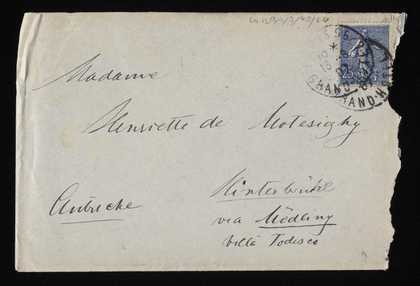 Madame
Henriette de Motesiczky
Hinterbrühl
Autriche
via Mödling
Villa Todesco